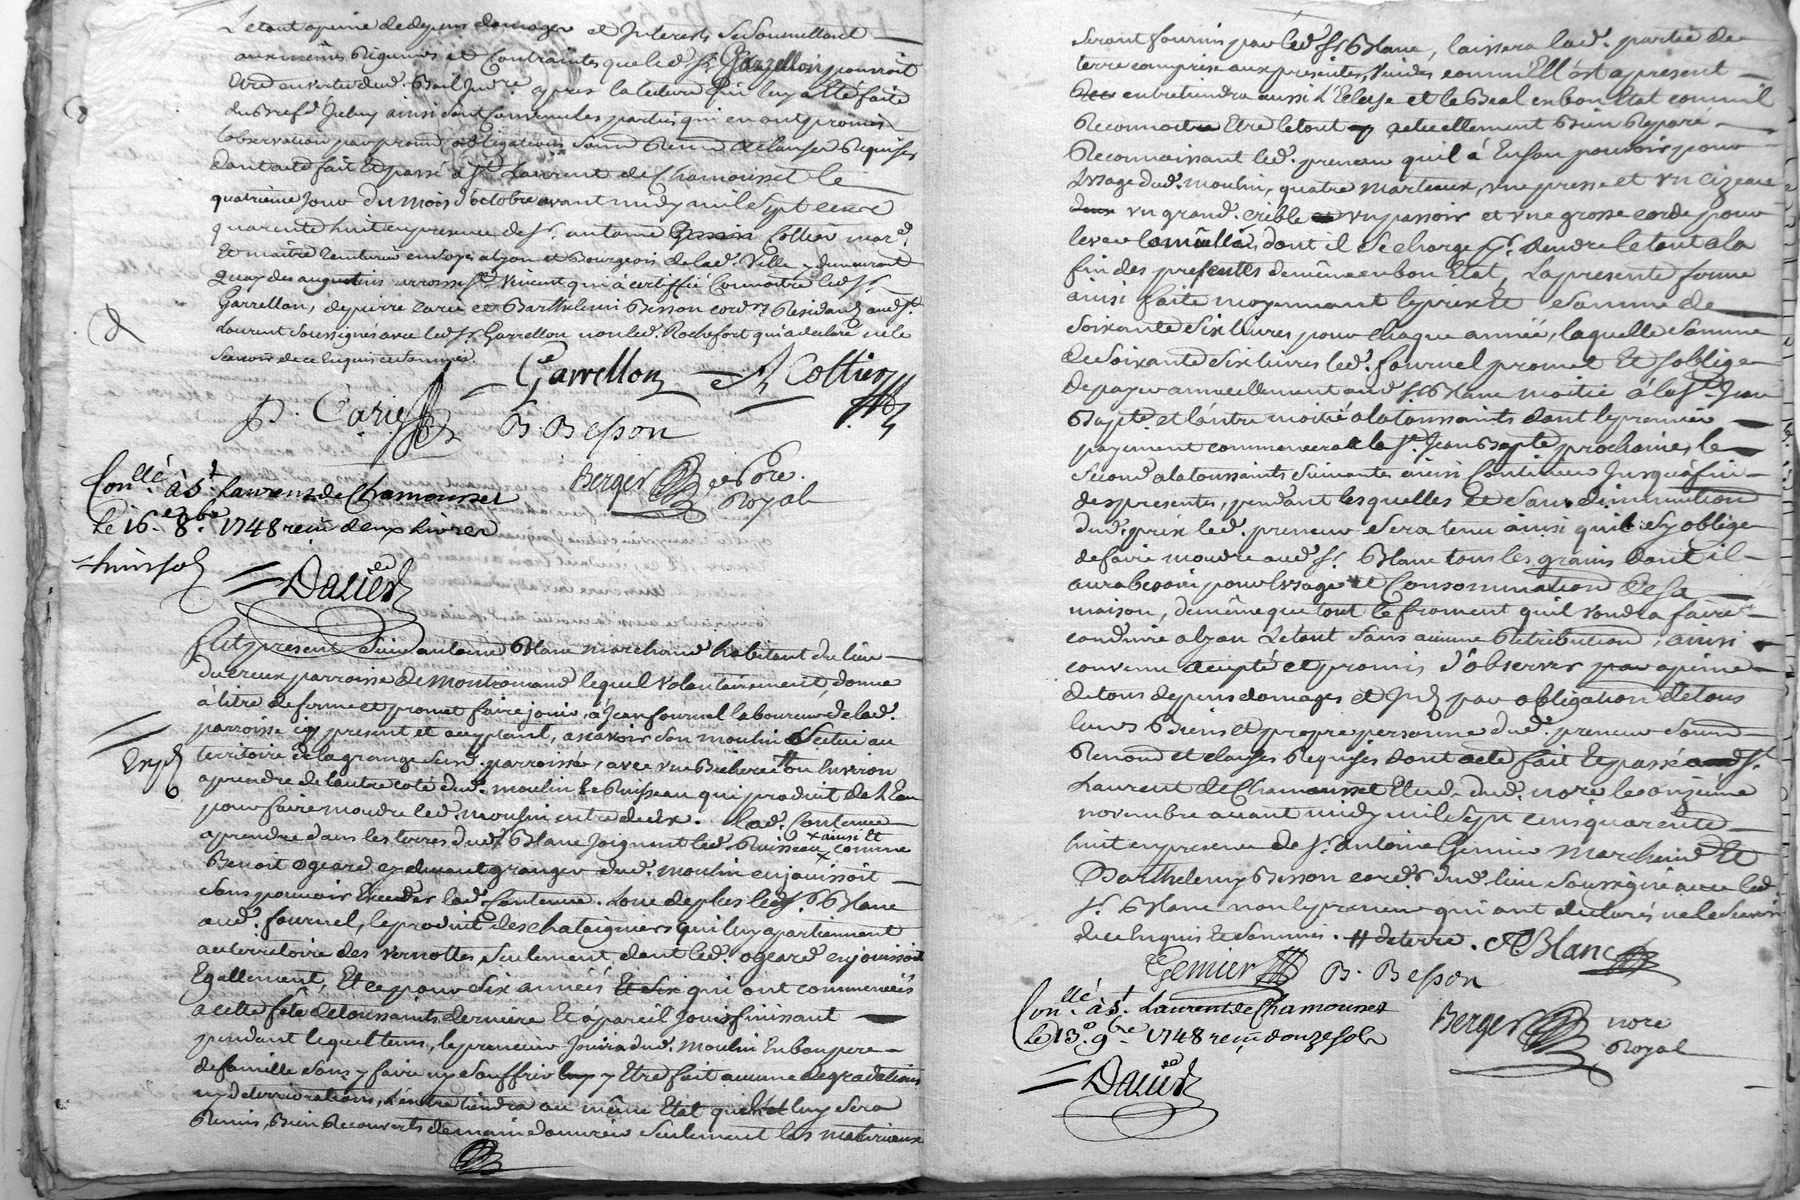 Le tout a peine de depens domages et Interests se soumettant
aux mêmes Rigueurs et Contraintes que led. Sr. Garrellon pourroit
Etre en vertu dud. Bail apres la lecture qui luy a été faite
ainsi sont convenu les parties qui en ont promis
l'observation par obligations Renon et clauses Requises
dont acte fait et passé à St. Laurent de Chamousset le
quatrieme Jour du mois d'octobre avant midy mil sept cent
quarente huit en presence de Sr. antoine Cottier mard.
Et maître teinturier en soye a lyon et Bourgeois de lad. Ville y demeurant
quay des augustins parroisse St. Vincent qui à certiffié Connoitre led. Sr.
Garrellon, de pierre carie et Barthelemi Bisson cord. Residants aud. St.
Laurent Soussignés avec led. Sr. Garrellon non led. Rochefort qui a declaré ne le
scavoir de ce Enquis et sommé.
Garrellon A Cottier
P. Carie B. Besson
Berger Nore Royal
Conllé à St. Laurens de Chamousset
le 16e. 8bre. 1748 reçu deux livres
Dalier
Fut present Sieur antoine Blanc marchand habitant du lieu
du creux parroisse de Montromand lequel volontairement, donne
à titre de ferme et promet faire jouir, à Jean fournel laboureur de lad.
parroisse icy present et acceptant, ascavoir son moulin scitué au
territoire de la grange susd. parroisse, avec une Bicherée // ou Environ
a prendre de l'autre coté dud. moulin le Ruisseau qui produit de l'Eau
pour faire moudre led. moulin entre deux. lad. Contenue
a prendre dans les terres dud. Sr Blanc Joignant led. Ruisseau x ainsi et comme
Benoit ogeard cy devant granger dud. moulin en jouissoit
sans pouvoir Exceder lad. Contenue. Loue de plus led. Sr. Blanc
aud. fournel, le produit des chataigners qui luy apartiennent
au territoire des vernottes seulement, dont led. ogeard en jouissoit
Egallement, Et ce pour six années qui ont commencés
a cette fête de toussaints derniere Et à pareil Jour finissant
pendant lequel tems, le preneur Jouira dud. Moulin En bon pere
de famille sans y faire ny souffrir y Etre fait aucune degradations
ny deteriorations, L'entretiendra au même Etat que luy sera
Remis, Bien Recouverts de main d'oeuvre seulement les materiaux
seront fournis par led. Sr Blanc, laissera lad. partie de
terre comprise aux presentes, Vuides comm'Ell' ést a present
entretiendra aussi l'Ecluse et le Beal en bon Etat comm'il
Reconnoitre Etre le tout actuellement Bien Reparé
Reconnaissant led. preneur qu'il à En son pouvoir pour
L'usage dud. moulin, quatre marteaux, une presse et un cizeau
un grand. crible un passoir et une grosse corde pour
lever la meulle, dont il se charge pr. Rendre le tout a la
fin des presentes de même en bon Etat, La presente ferme
ainsi faite moyennant le prix Et somme de
soixante six livres pour chaque année, laquelle somme
de soixante six livres led. fournel promet Et s'oblige
de payer annuellement aud. Sr Blanc moitié à la St. Jean
Bapte. et l'autre moitié a la toussaints dont le premier
payement commencera a la St. Jean Bapte prochaine, le
second a la toussaints suivante ainsi Continuer Jusqu'a fin
des presentes, pendant lesquelles Et sans diminution
dud. prix led. preneur sera tenu ainsi qu'il s'y oblige
de faire moudre aud. Sr. Blanc tous les grains dont il
aura besoin pour l'usage et Consommation de sa
maison, de même que tout le froment qu'il voudra faire
conduire a lyon Le tout sans aucune Retribution, ainsi
convenu accepté et promis d'observer a peine
de tous depens domages et Ints par obligation de tous
leurs Biens et propre personne dud. preneur soum.
Renond et clauses Requises dont acte fait et passé a St.
Laurent de Chamousset Etude dud. nore le onzieme
novembre avant midy mil sept cens quarente
huit en presence de Sr. Antoine Genier Marchand Et
Barthelemy Bisson cord. dud. lieu soussigné avec led.
Sr. Blanc non le preneur qui ont declarés ne le scavoir
de ce Enquis Et sommés. // de terre. ABlanc
Genier B. Besson
Berger nore Royal
Conllé à St. Laurent de Chamousset
le 13e. 9bre 1748 reçu douze sols
Dalier